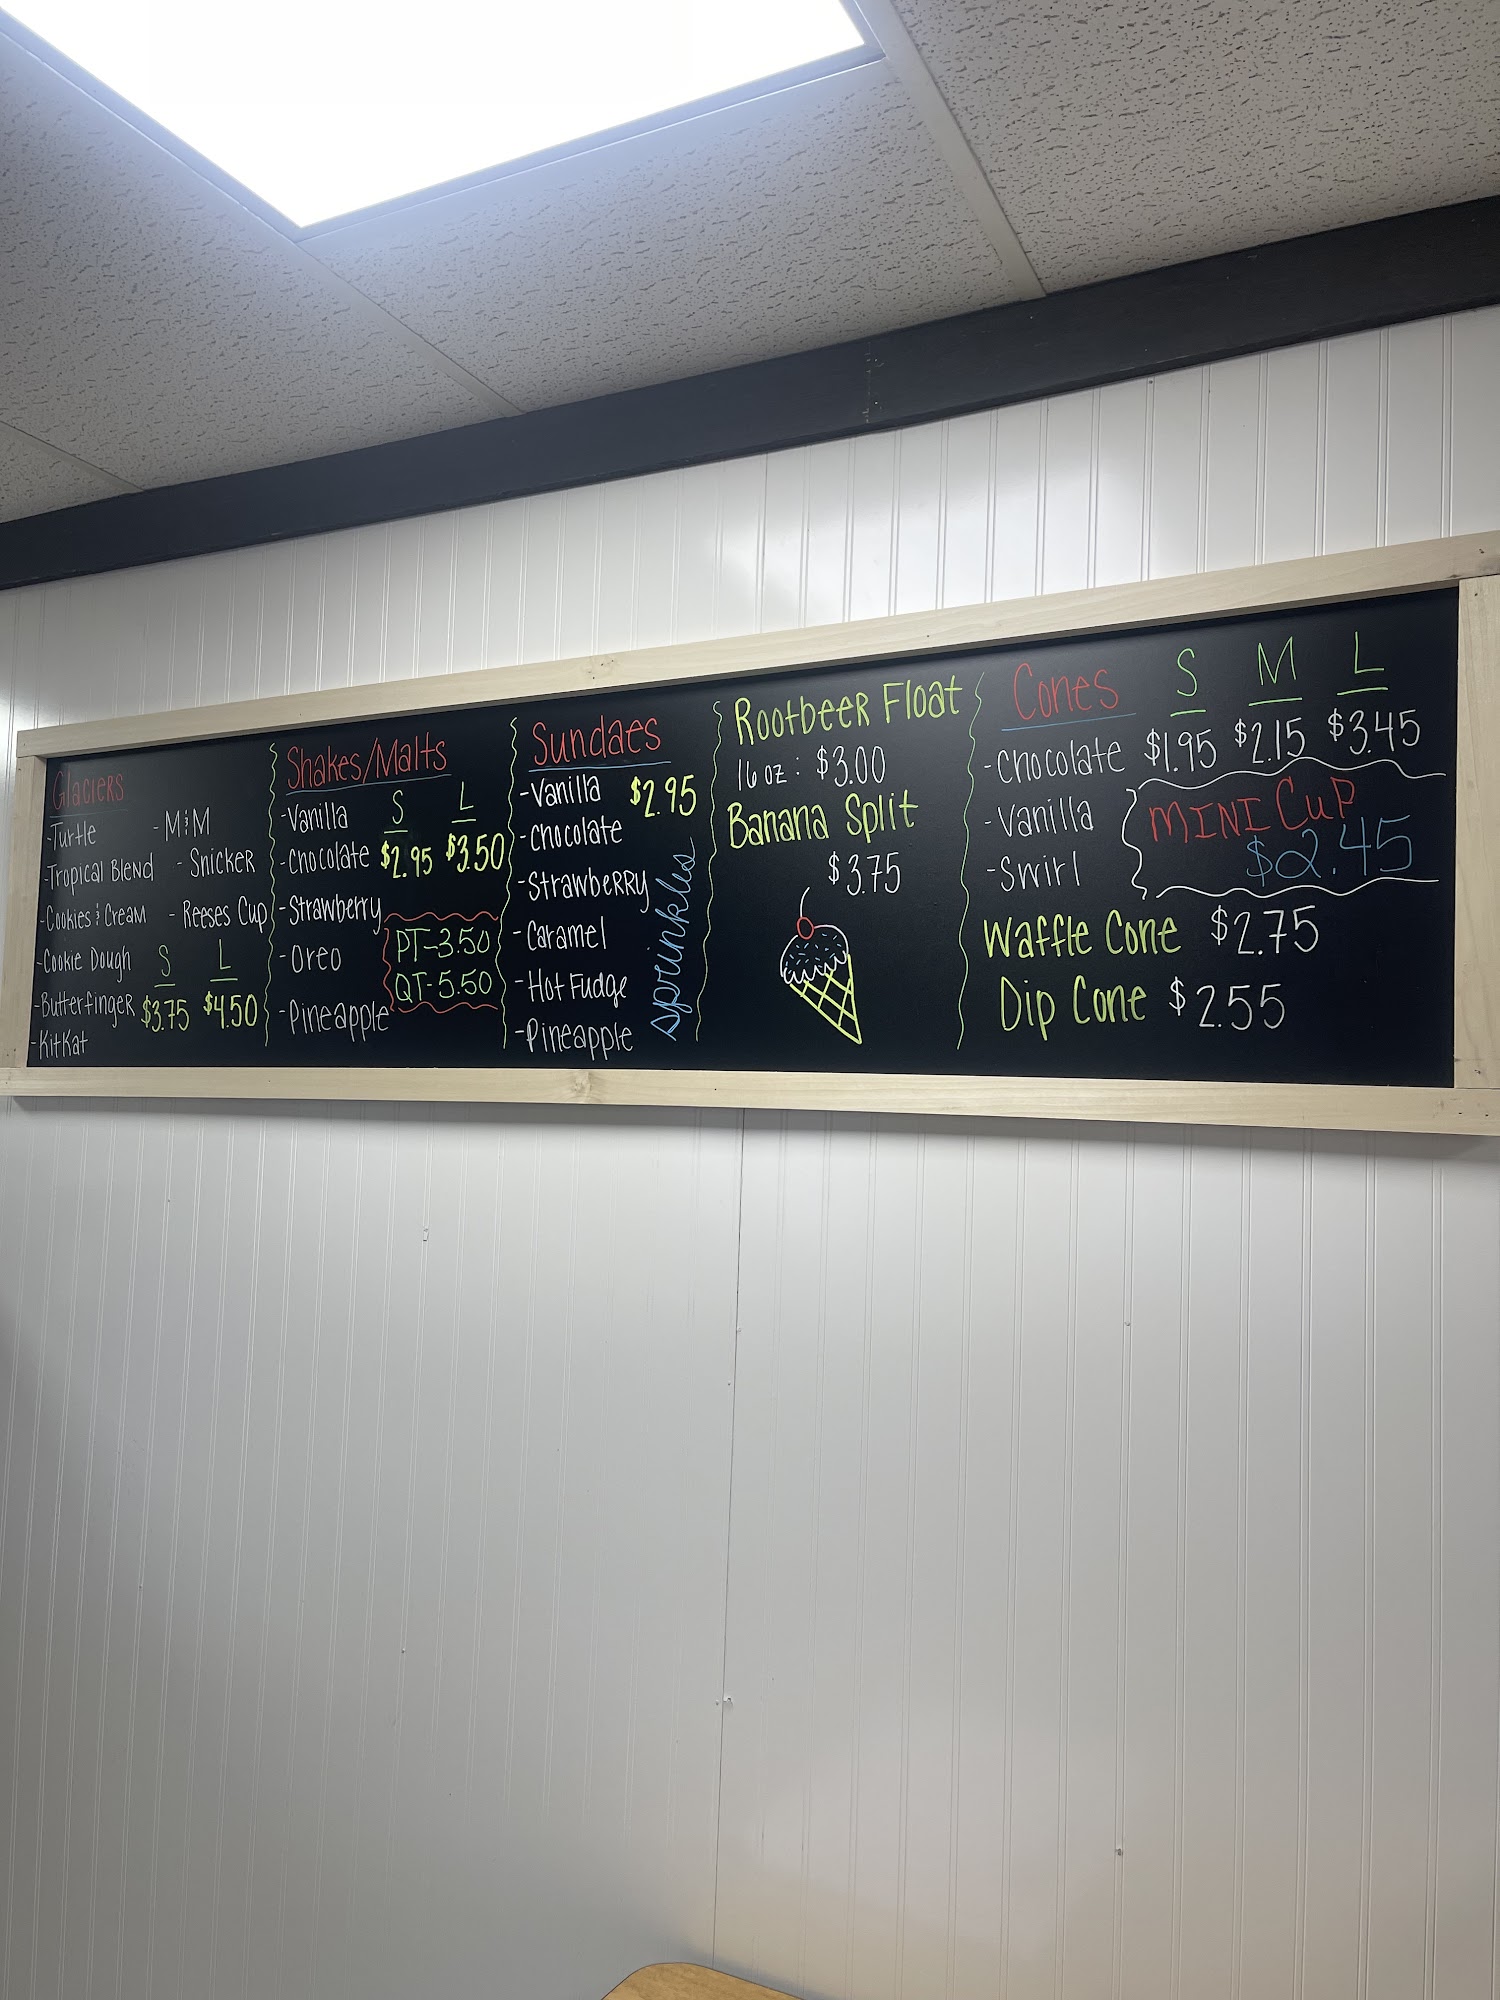 Glaciers
-Turtle
-Tropical Blend
-Cookies & Cream
-Cookie Dough
-Butterfinger
-KitKat
-M&M
-Snicker
-Reeses Cup
S L
$3.75 $4.50
Shakes/Malts
-Vanilla
-Chocolate
-Strawberry
-Oreo
-Pineapple
S L
$2.95 $3.50
PT-3.50
QT-5.50
Sundaes
-Vanilla $2.95
-Chocolate
-Strawberry
-Caramel
-Hot Fudge
-Pineapple
sprinkles
Rootbeer Float
16 oz: $3.00
Banana Split
$3.75
Cones S M L
-Chocolate $1.95 $2.15 $3.45
-Vanilla
-Swirl
MINI CuP
$2.45
Waffle Cone $2.75
Dip Cone $2.55